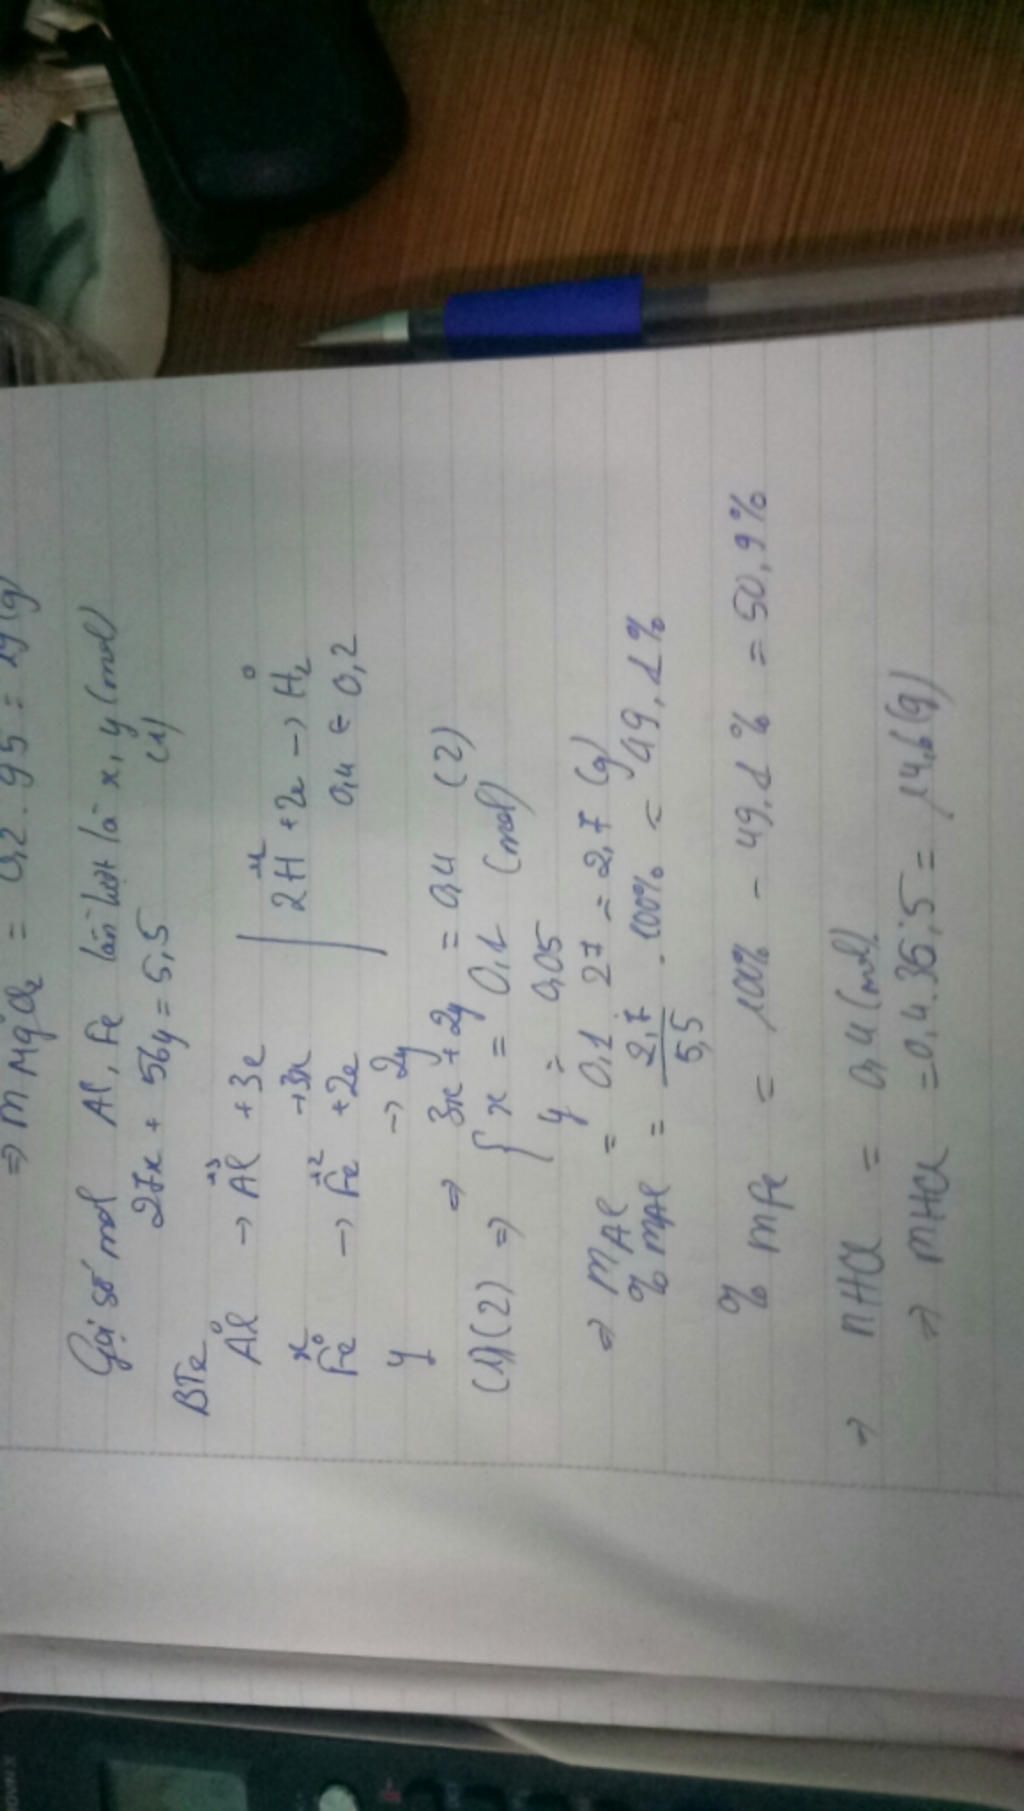 ⇒ mMgCl₂ = 0,2 . 95 = 19 (g)
Gọi số mol Al, Fe lần lượt là x, y (mol)
27x + 56y = 5,5 (1)
BTe
Al⁰ → Al⁺³ + 3e
x → 3x
Fe⁰ → Fe⁺² + 2e
y → 2y
2H⁺¹ + 2e → H₂⁰
0,4 ← 0,2
⇒ 3x + 2y = 0,4 (2)
(1)(2) ⇒ { x = 0,1 (mol)
y = 0,05
⇒ mAl = 0,1 . 27 = 2,7 (g)
% mAl = 2,7 / 5,5 . 100% = 49,1%
% mFe = 100% - 49,1% = 50,9%
⇒ nHCl = 0,4 (mol)
⇒ mHCl = 0,4 . 36,5 = 14,6 (g)